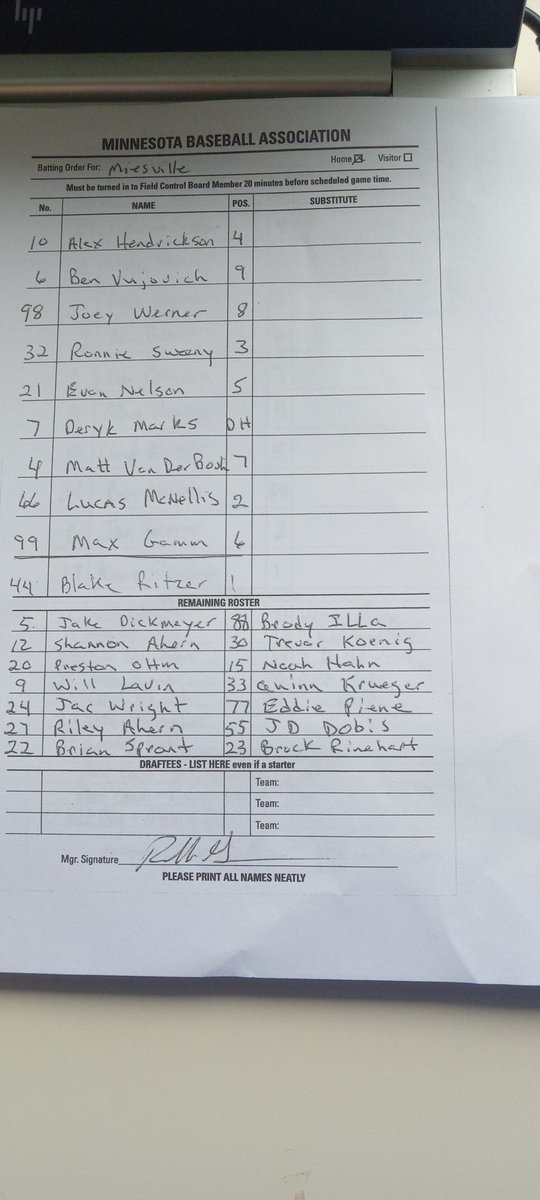 hp
MINNESOTA BASEBALL ASSOCIATION
Batting Order For: Miresville Home ☒ Visitor ☐
Must be turned in to Field Control Board Member 20 minutes before scheduled game time.
No. NAME POS. SUBSTITUTE
10 Alex Hendrickson 4
6 Ben Vujovich 9
98 Joey Werner 8
32 Ronnie Sweeny 3
21 Evan Nelson 5
7 Deryk Marks DH
4 Matt Van Der Bosh 7
66 Lucas McNellis 2
99 Max Gamm 6
44 Blake Ritzer 1
REMAINING ROSTER
5 Jake Dickmeyer 88 Brody ILLa
12 Shannon Ahern 30 Trevor Koenig
20 Preston OHm 15 Noah Hahn
9 Will Lavin 33 Quinn Krueger
24 Jac Wright 77 Eddie Piene
27 Riley Ahern 55 JD Dobis
22 Brian Sprout 23 Brock Rinehart
DRAFTEES - LIST HERE even if a starter
Team:
Team:
Team:
Mgr. Signature
PLEASE PRINT ALL NAMES NEATLY